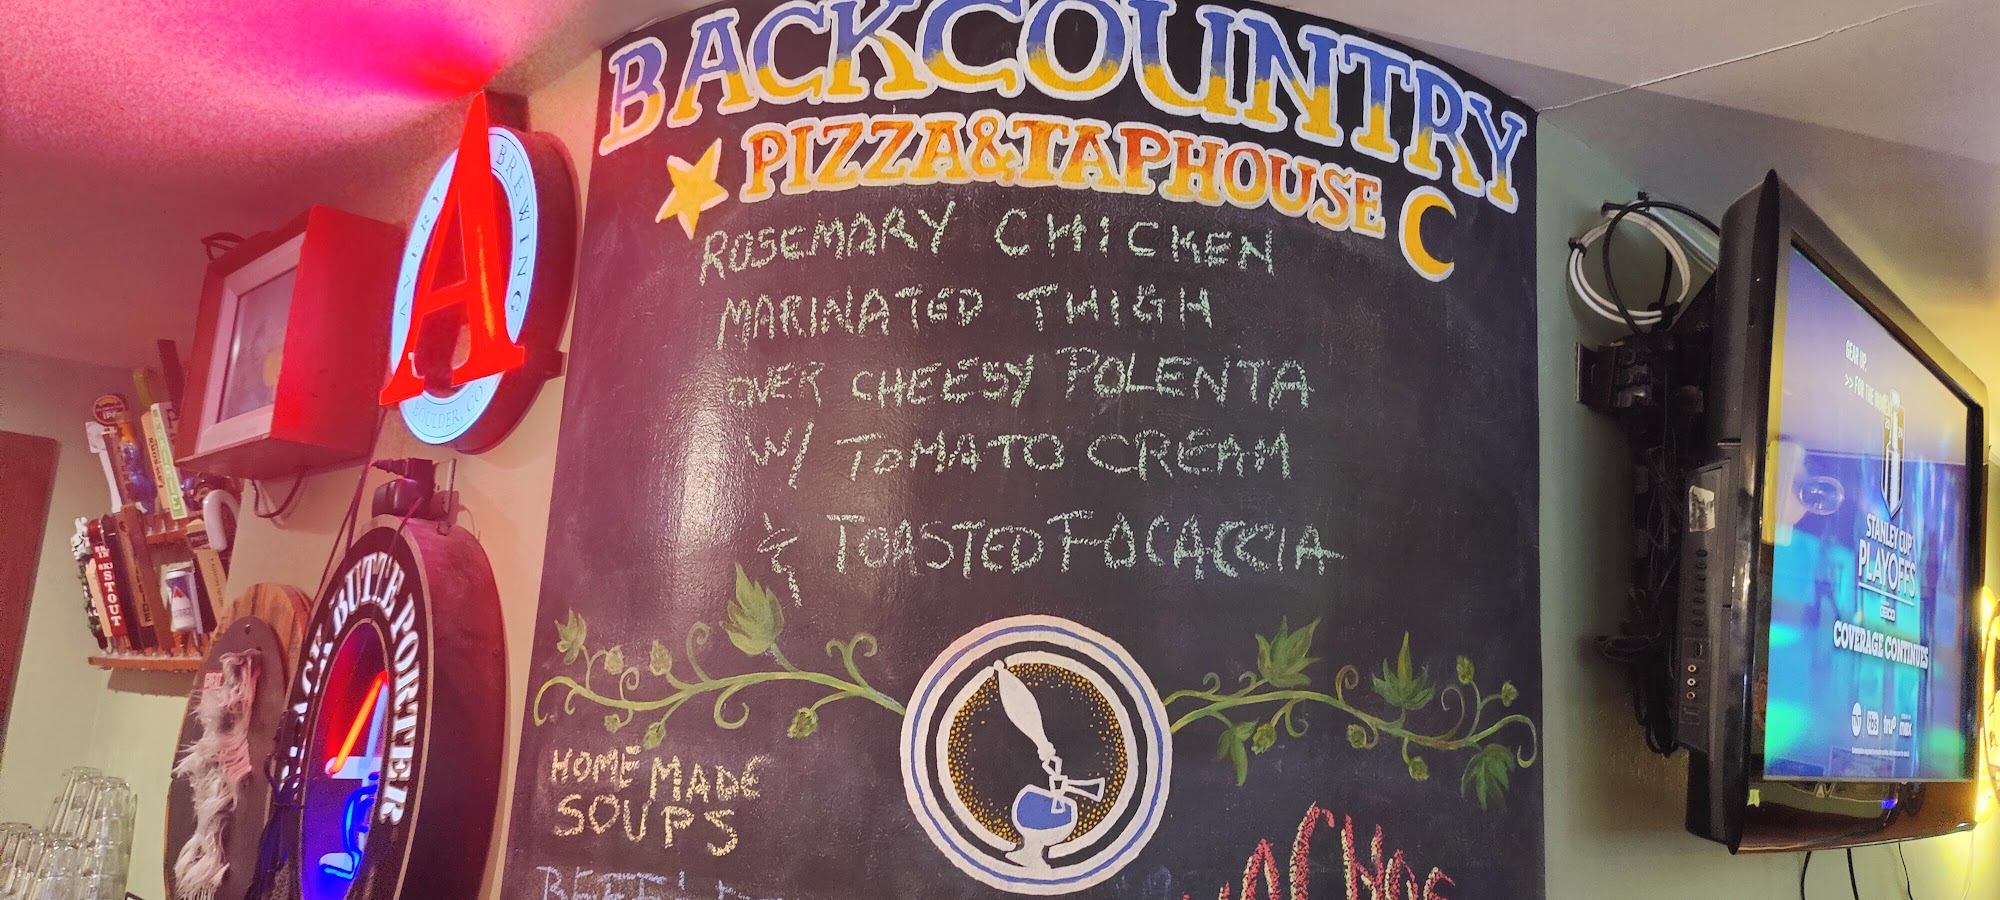 BACKCOUNTRY
PIZZA&TAPHOUSE
ROSEMARY CHICKEN
MARINATED THIGH
OVER CHEESY POLENTA
W/ TOMATO CREAM
& TOASTED FOCACCIA
HOMEMADE
SOUPS
AVERY BREWING
A
BOULDER, CO
BUTTE PORTER
STOUT
GEAR UP.
>> FOR THE
STANLEY CUP
PLAYOFFS
GEICO
COVERAGE CONTINUES
TNT TBS tru max